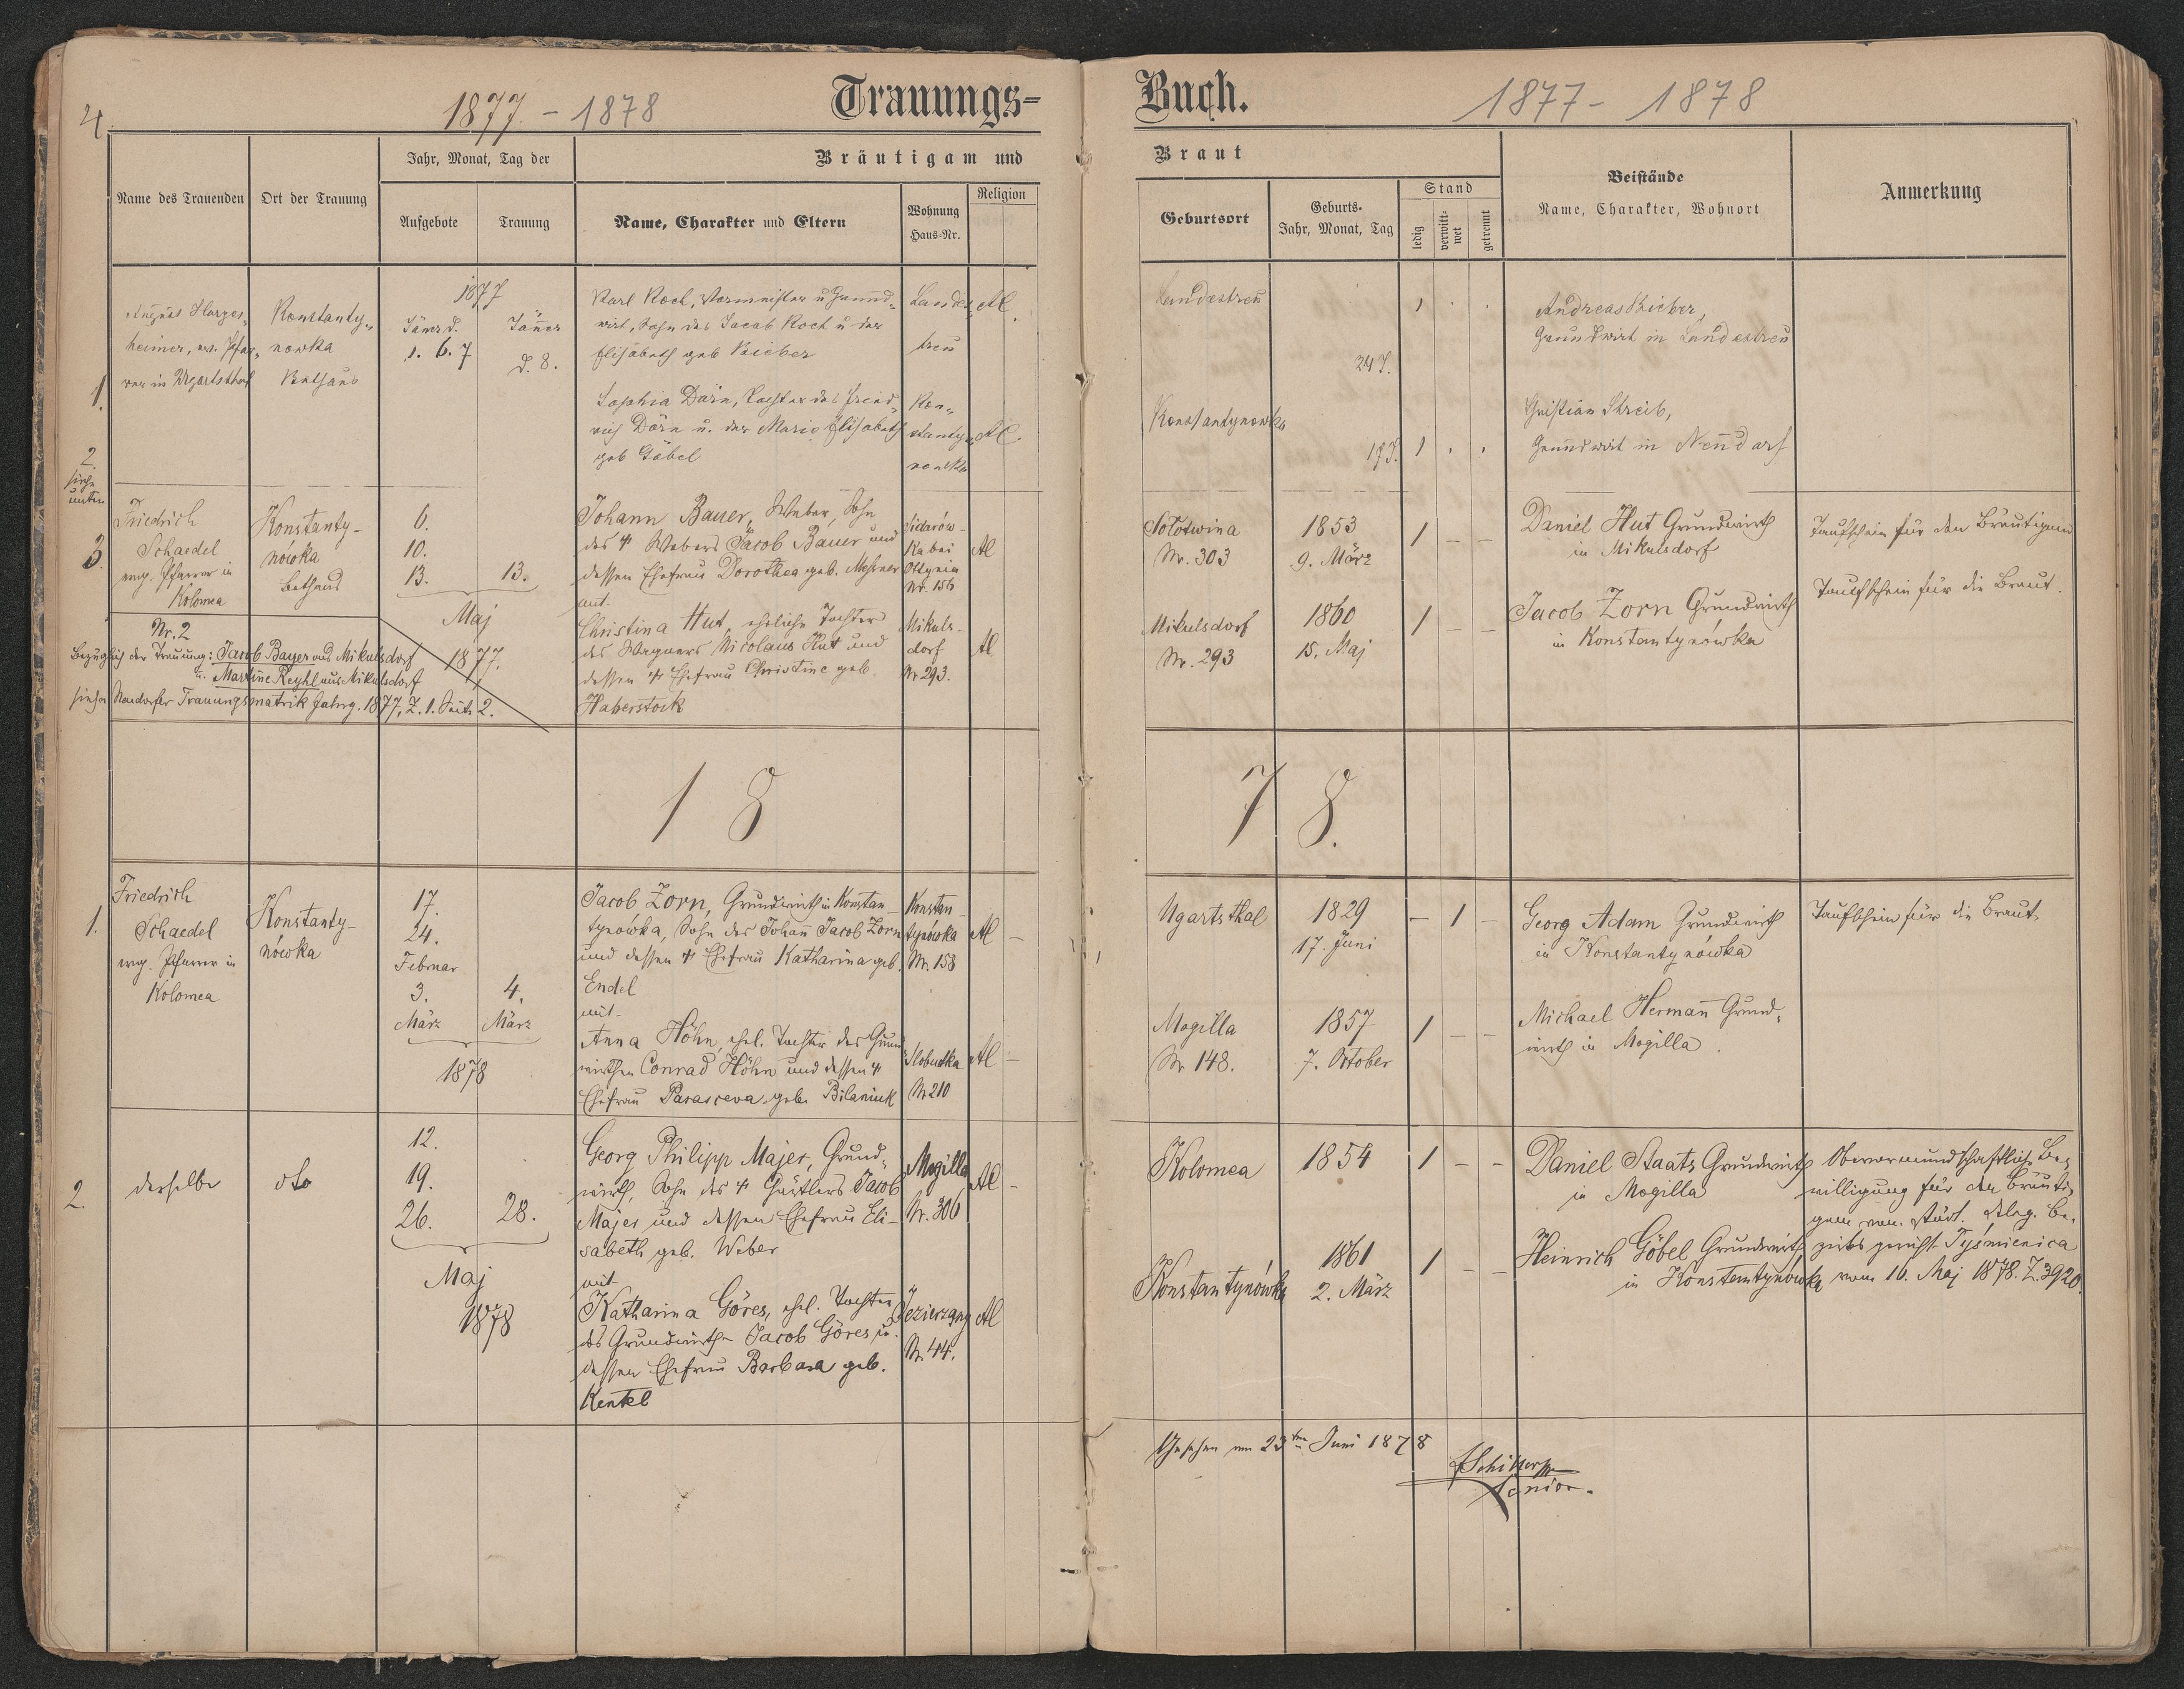 4
1877. - 1878
Trauungs-
Name des Trauenden
Ort der Trauung
Jahr, Monat, Tag der
Aufgebote
Trauung
Bräutigam und
Name, Charakter und Eltern
Wohnung
Haus-Nr.
Religion
1.
heimer, ev. Pfar-
rer in Ugartsthal
Konstanty-
nowka
Bethaus
1877
Jäner d.
1. 6. 7
Jäner
d. 8.
Karl Koch, u Grund-
wirt, Sohn des Jacob Koch u der
Elisabeth geb Rieber
Landes-
treu
Al.
Sophia Dörn, Tochter des Fried-
rich Dörn u. der Marie Elisabeth
geb Göbel
Kon-
stanty-
nowka
Al.
2.
siehe
unten
3.
Friedrich
Schaedel
evg. Pfarrer in
Kolomea
Konstanty-
nówka
Bethaus
6.
10.
13.
13.
Maj
1877.
Johann Bauer, Weber, Sohn
des † Webers Jacob Bauer und
dessen Ehefrau Dorothea geb. Mehrer
mit
Sidorów-
ka bei
Ottynia
Nr. 156
Al
Christina Hut, eheliche Tochter
des Wagners Nicolaus Hut und
dessen † Ehefrau Christine geb.
Haberstock
Mikuls-
dorf
Nr 293.
Al
Nr. 2
Bezüglich der Trauung: Jacob Bayer aus Mikulsdorf
u. Martine Reyhl aus Mikulsdorf
siehe Neudorfer Trauungsmatrik Jahrg. 1877, Z. 1. Seite 2.
1 8
1.
Friedrich
Schaedel
evg. Pfarrer in
Kolomea
Konstanty-
nówka
17.
24.
Februar
3.
März
4.
März
1878
Jacob Zorn, Grundwirth in Konstan-
tynówka, Sohn des Johann Jacob Zorn
und dessen † Ehefrau Katharina geb.
Endel
mit
Konstan-
tynówka
Nr. 158
Al -
Anna Höhn, ehel. Tochter des Grund-
wirthen Conrad Höhn und dessen †
Ehefrau Parasceva geb. Bilaniuk
Slobudka
Nr 210
Al -
2.
derselbe
dto
12.
19.
26.
28.
Maj
1878
Georg Philipp Majer, Grund-
wirth, Sohn des † Jacob
Majer und dessen Ehefrau Eli-
sabeth geb. Weber
mit
Mogilla
Nr. 306
Al -
Katharina Göres, ehel. Tochter
des Grundwirth Jacob Göres u.
dessen Ehefrau Barbara geb.
Kentel
Jezierzany
Nr. 44.
Al
Buch.
1877 - 1878
Braut
Geburtsort
Geburts-
Jahr, Monat, Tag
Stand
ledig
verwitt-
wet
getrennt
Beistände
Name, Charakter, Wohnort
Anmerkung
Landestreu
24 J.
1 . .
Andreas Rieber,
Grundwirt in Landestreu
Konstantynowka
19 J.
1 . .
Christian Streib,
Grundwirt in Neudorf
Sołotwina
Nr. 303
1853
9. März
1 - -
Daniel Hut Grundwirth
in Mikulsdorf
Taufschein für den Bräutigam
Mikulsdorf
Nr. 293
1860
15. Maj
1 - -
Jacob Zorn Grundwirth
in Konstantynówka
Taufschein für die Braut.
7 8.
Ugartsthal
1829
17. Juni
- 1 -
Georg Adam Grundwirth
in Konstantynówka
Taufschein für die Braut.
Mogilla
Nr 148.
1857
7. October
1 - -
Michael Hermann Grund-
wirth in Mogilla.
Kolomea
1854
1 - -
Daniel Staats Grundwirth
in Mogilla
Obervormundschaftlich Be-
willigung für den Bräuti-
gam vom städt. deleg. Be-
zirksgericht Tyśmienica
vom 16. Maj 1878. Z. 3920.
Konstantynówka
1861
2. März
1 - -
Heinrich Göbel Grundwirth
in Konstantynówka
Gesehen am 23ten Juni 1878
Senior.